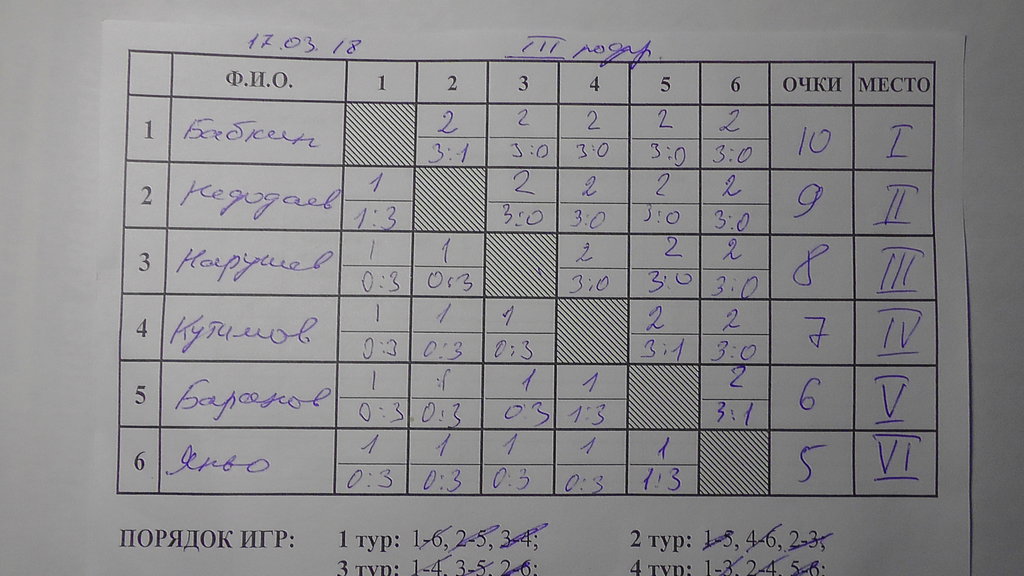 17.03.18 III подгр.
Ф.И.О. 1 2 3 4 5 6 ОЧКИ МЕСТО
1 Бабкин 2 2 2 2 2 10 I
3:1 3:0 3:0 3:0 3:0
2 Недодаев 1 2 2 2 2 9 II
1:3 3:0 3:0 3:0 3:0
3 Нарушев 1 1 2 2 2 8 III
0:3 0:3 3:0 3:0 3:0
4 Кутимов 1 1 1 2 2 7 IV
0:3 0:3 0:3 3:1 3:0
5 Баранов 1 1 1 1 2 6 V
0:3 0:3 0:3 1:3 3:1
6 Янво 1 1 1 1 1 5 VI
0:3 0:3 0:3 0:3 1:3
ПОРЯДОК ИГР: 1 тур: 1-6, 2-5, 3-4; 2 тур: 1-5, 4-6, 2-3;
3 тур: 1-4, 3-5, 2-6; 4 тур: 1-3, 2-4, 5-6;